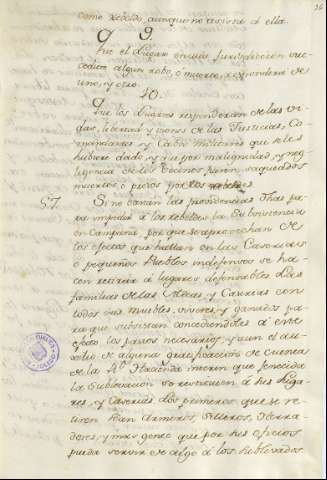 como rebelde, aunque no asista a ella.
9.
Que el Lugar en cuia Jurisdiccion suc-
cediere algun robo, o muerte, responderá de
uno, y otro.
10.
Que los Lugares responderan de las vi-
das, libertad, y penas de las Justicias, Co-
mandantes y Cabos Militares que se les
hubiere dado, y que por malignidad, y neg-
ligencia de los Vecinos fueren saqueados
muertos, ó presos por los rebeldes
57. Si no bastan las providencias Thas pa-
ra impedir á los rebeldes la Subsistencia
en Campaña por que se aprovechan de
los efectos que hallan en las Caserias
ó pequeños Pueblos indefensos se ha-
cen retirar á lugares defensables Las
familias de las Aldeas y Caserias con
todos sus muebles, viveres, y ganados pa-
ra que subsistan concediendoles á este
efecto los pastos necesarios, y aun el au-
xilio de alguna gratificacion de cuenta
de la Rl. Hacienda interin que fenecida
la Sublevacion se restituyen á sus Luga-
res, y Caserias. Los primeros que se re-
tiren seran Armeros, Silleros, Herra-
dores, y mas gente que por sus oficios
pueda servir de algo á los Sublevados
26